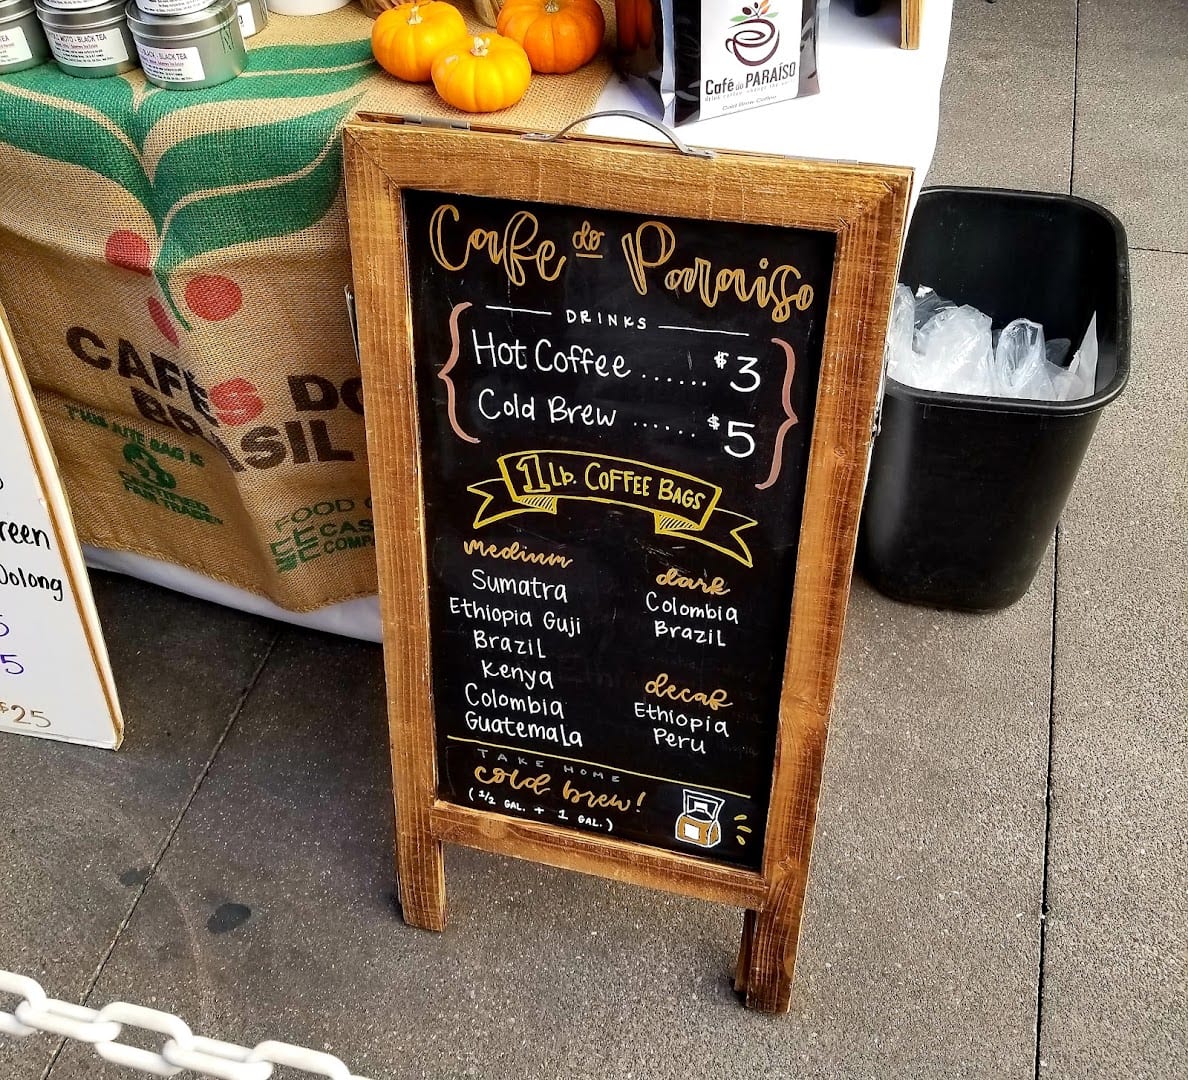 MOTO - BLACK TEA
BLACK - BLACK TEA
Café do PARAÍSO
Cold Brew Coffee
CAFÉS DO
BRASIL
THIS JUTE BAG IS
3
CERTIFIED
FAIR TRADE
FOOD
CAS
COMP
reen
Oolong
5
5
$25
Cafe do Paraiso
DRINKS
Hot Coffee ...... $3
Cold Brew ...... $5
1 Lb. COFFEE BAGS
medium
Sumatra
Ethiopia Guji
Brazil
Kenya
Colombia
Guatemala
dark
Colombia
Brazil
decaf
Ethiopia
Peru
TAKE HOME
cold brew!
(1/2 GAL. + 1 GAL.)